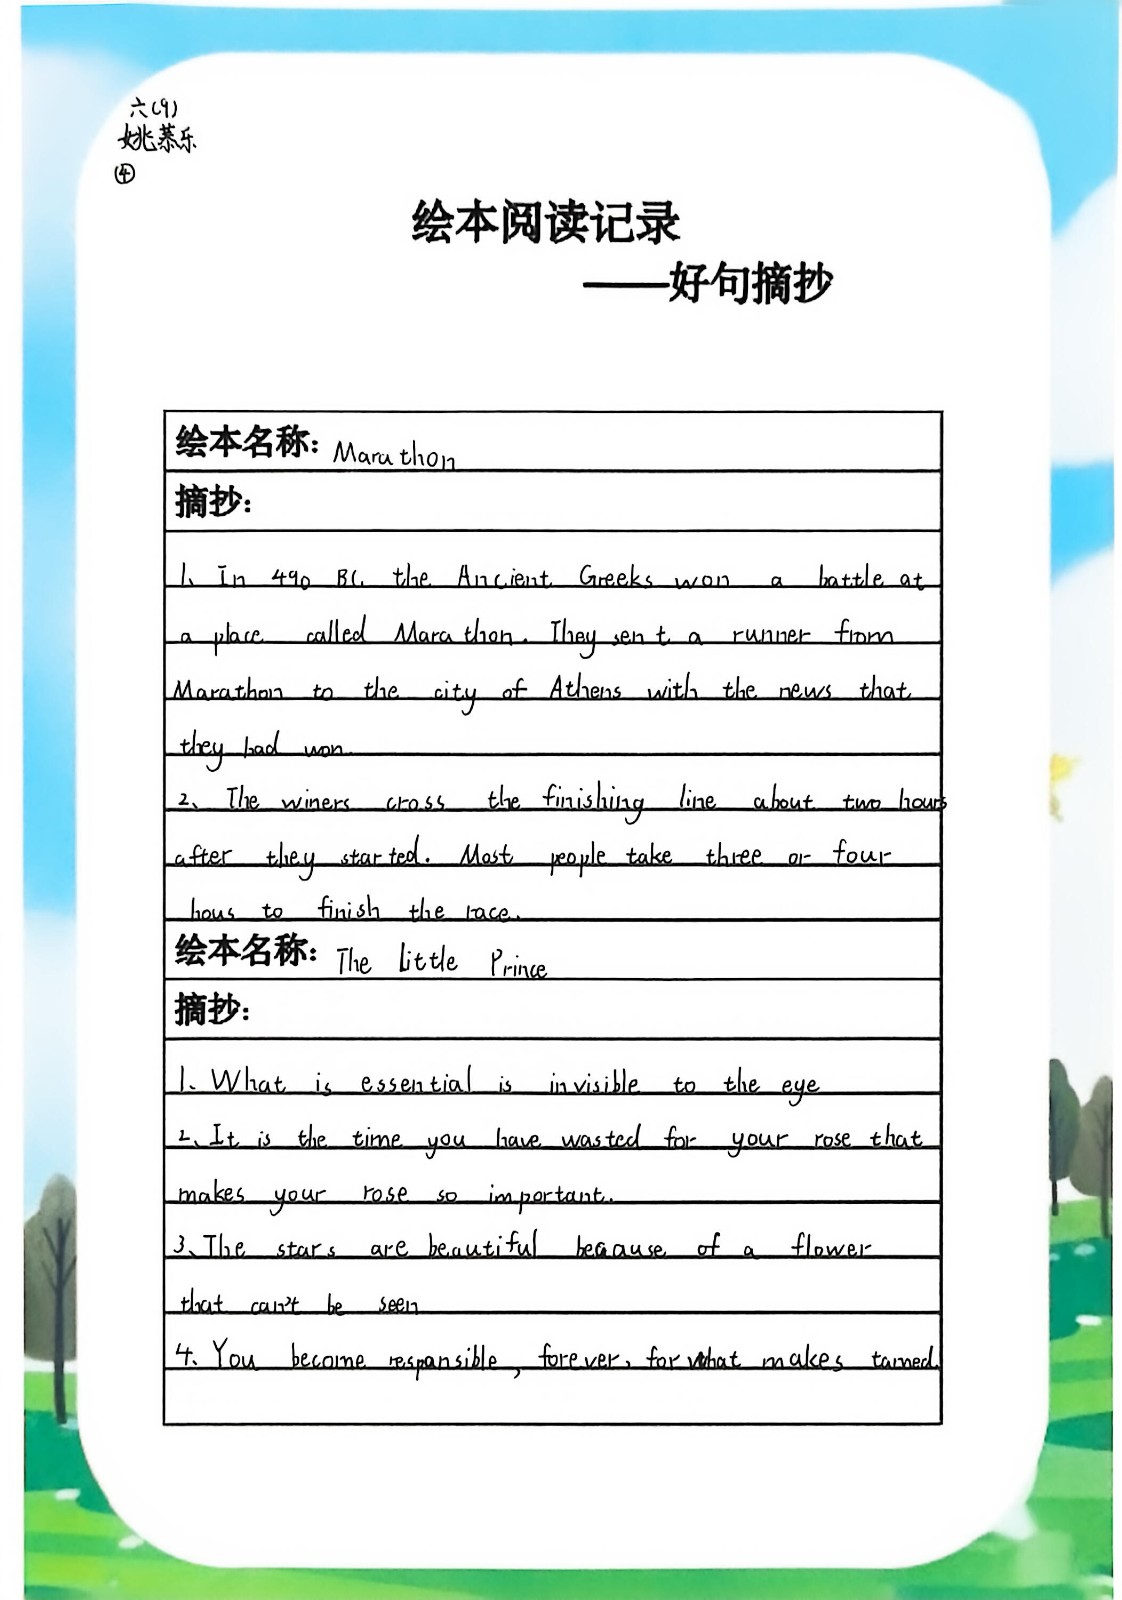 六(9)
姚慕乐
④
绘本阅读记录
——好句摘抄
绘本名称: Marathon
摘抄:
1、In 490 BC. the Ancient Greeks won a battle at
a place called Marathon. They sent a runner from
Marathon to the city of Athens with the news that
they had won.
2、The winers cross the finishing line about two hours
after they started. Most people take three or four
hous to finish the race.
绘本名称: The Little Prince
摘抄:
1、What is essential is invisible to the eye
2、It is the time you have wasted for your rose that
makes your rose so important.
3、The stars are beautiful beaause of a flower
that can't be seen
4、You become respansible, forever, for what makes tamed.